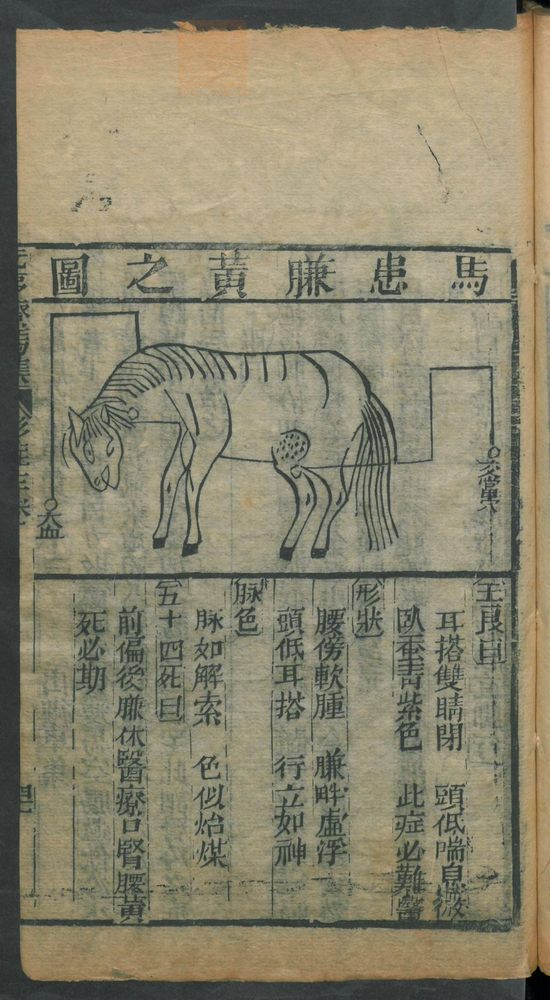 馬患膁黃之圖
大血
王良曰
耳搭雙睛閉　頭低喘息微
臥蚕青紫色　此症必難醫
形狀
腰傍軟腫　膁畔虛浮
頭低耳搭　行立如神
脉色
脉如解索　色似炲煤
五十四死曰
前偏後膁休醫療口腎腰黃
死必期